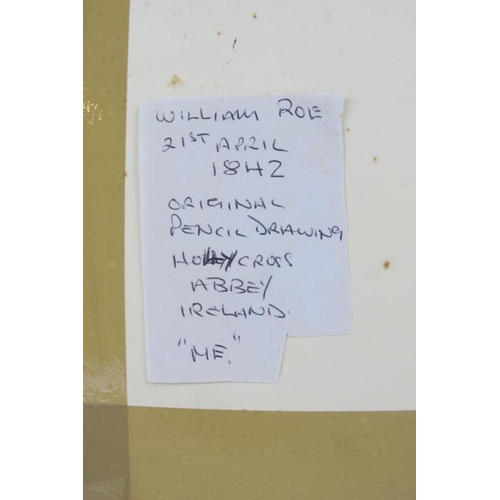 WILLIAM ROE
21ST APRIL
1842
ORIGINAL
PENCIL DRAWING
HOLYCROSS
ABBEY
IRELAND.
"ME."